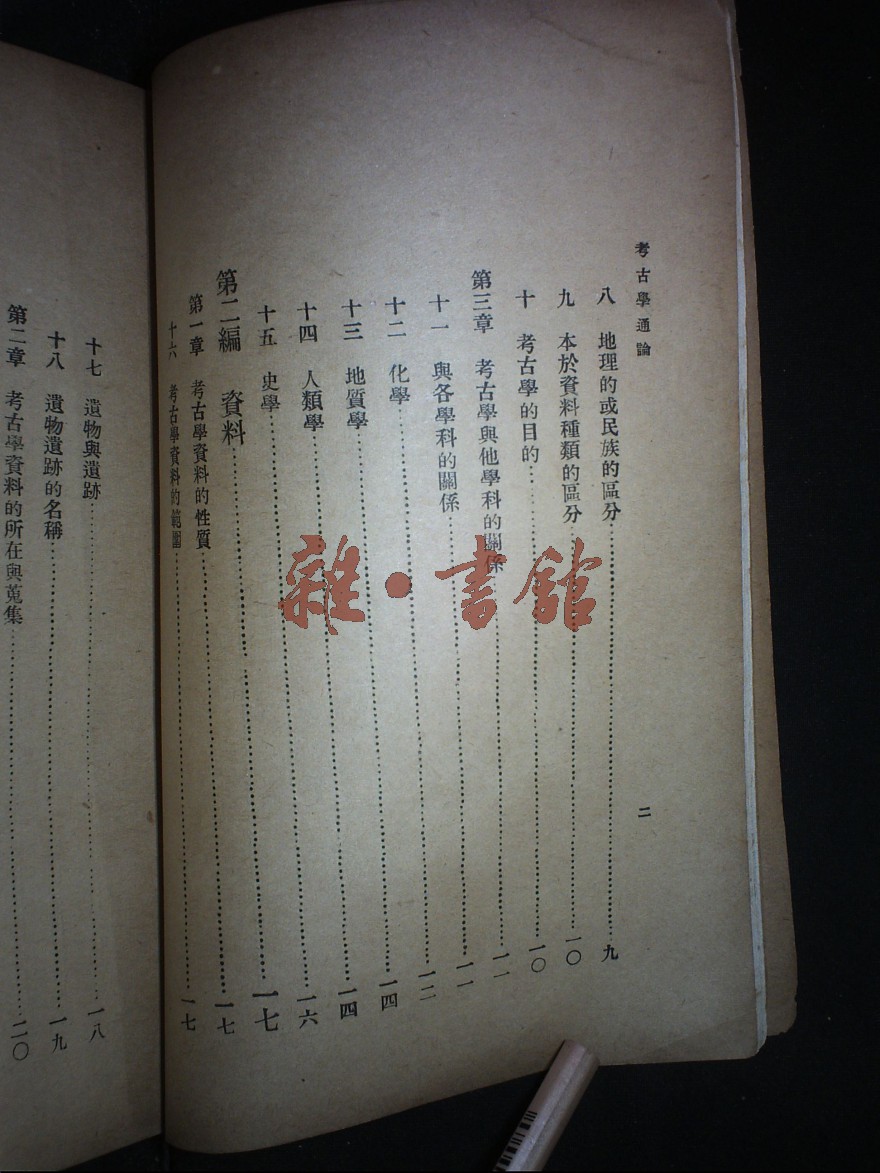 考古學通論
二
八 地理的或民族的區分……九
九 本於資料種類的區分……一〇
十 考古學的目的……一〇
第三章 考古學與他學科的關係……一一
十一 與各學科的關係……一一
十二 化學……一二
十三 地質學……一四
十四 人類學……一四
十五 史學……一六
第二編 資料……一七
第一章 考古學資料的性質……一七
十六 考古學資料的範圍……一七
十七 遺物與遺跡……一八
十八 遺物遺跡的名稱……一九
第二章 考古學資料的所在與蒐集……二〇
雜·書館